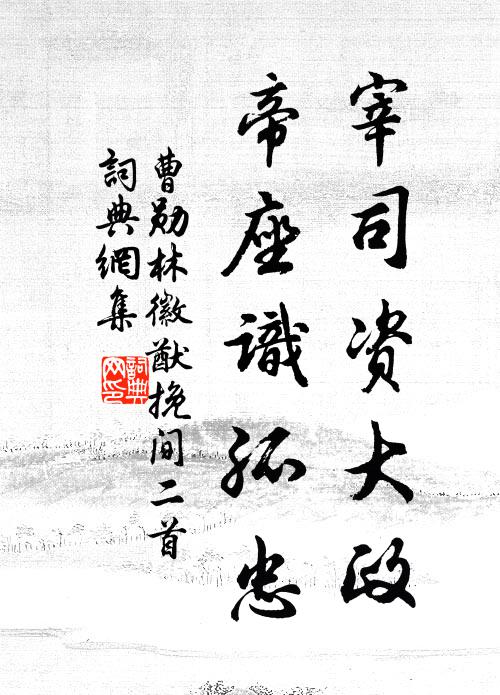 宰司资大政
帝座識孤忠
曹勛林徽猷挽间二首
詞典網集
詞典網印